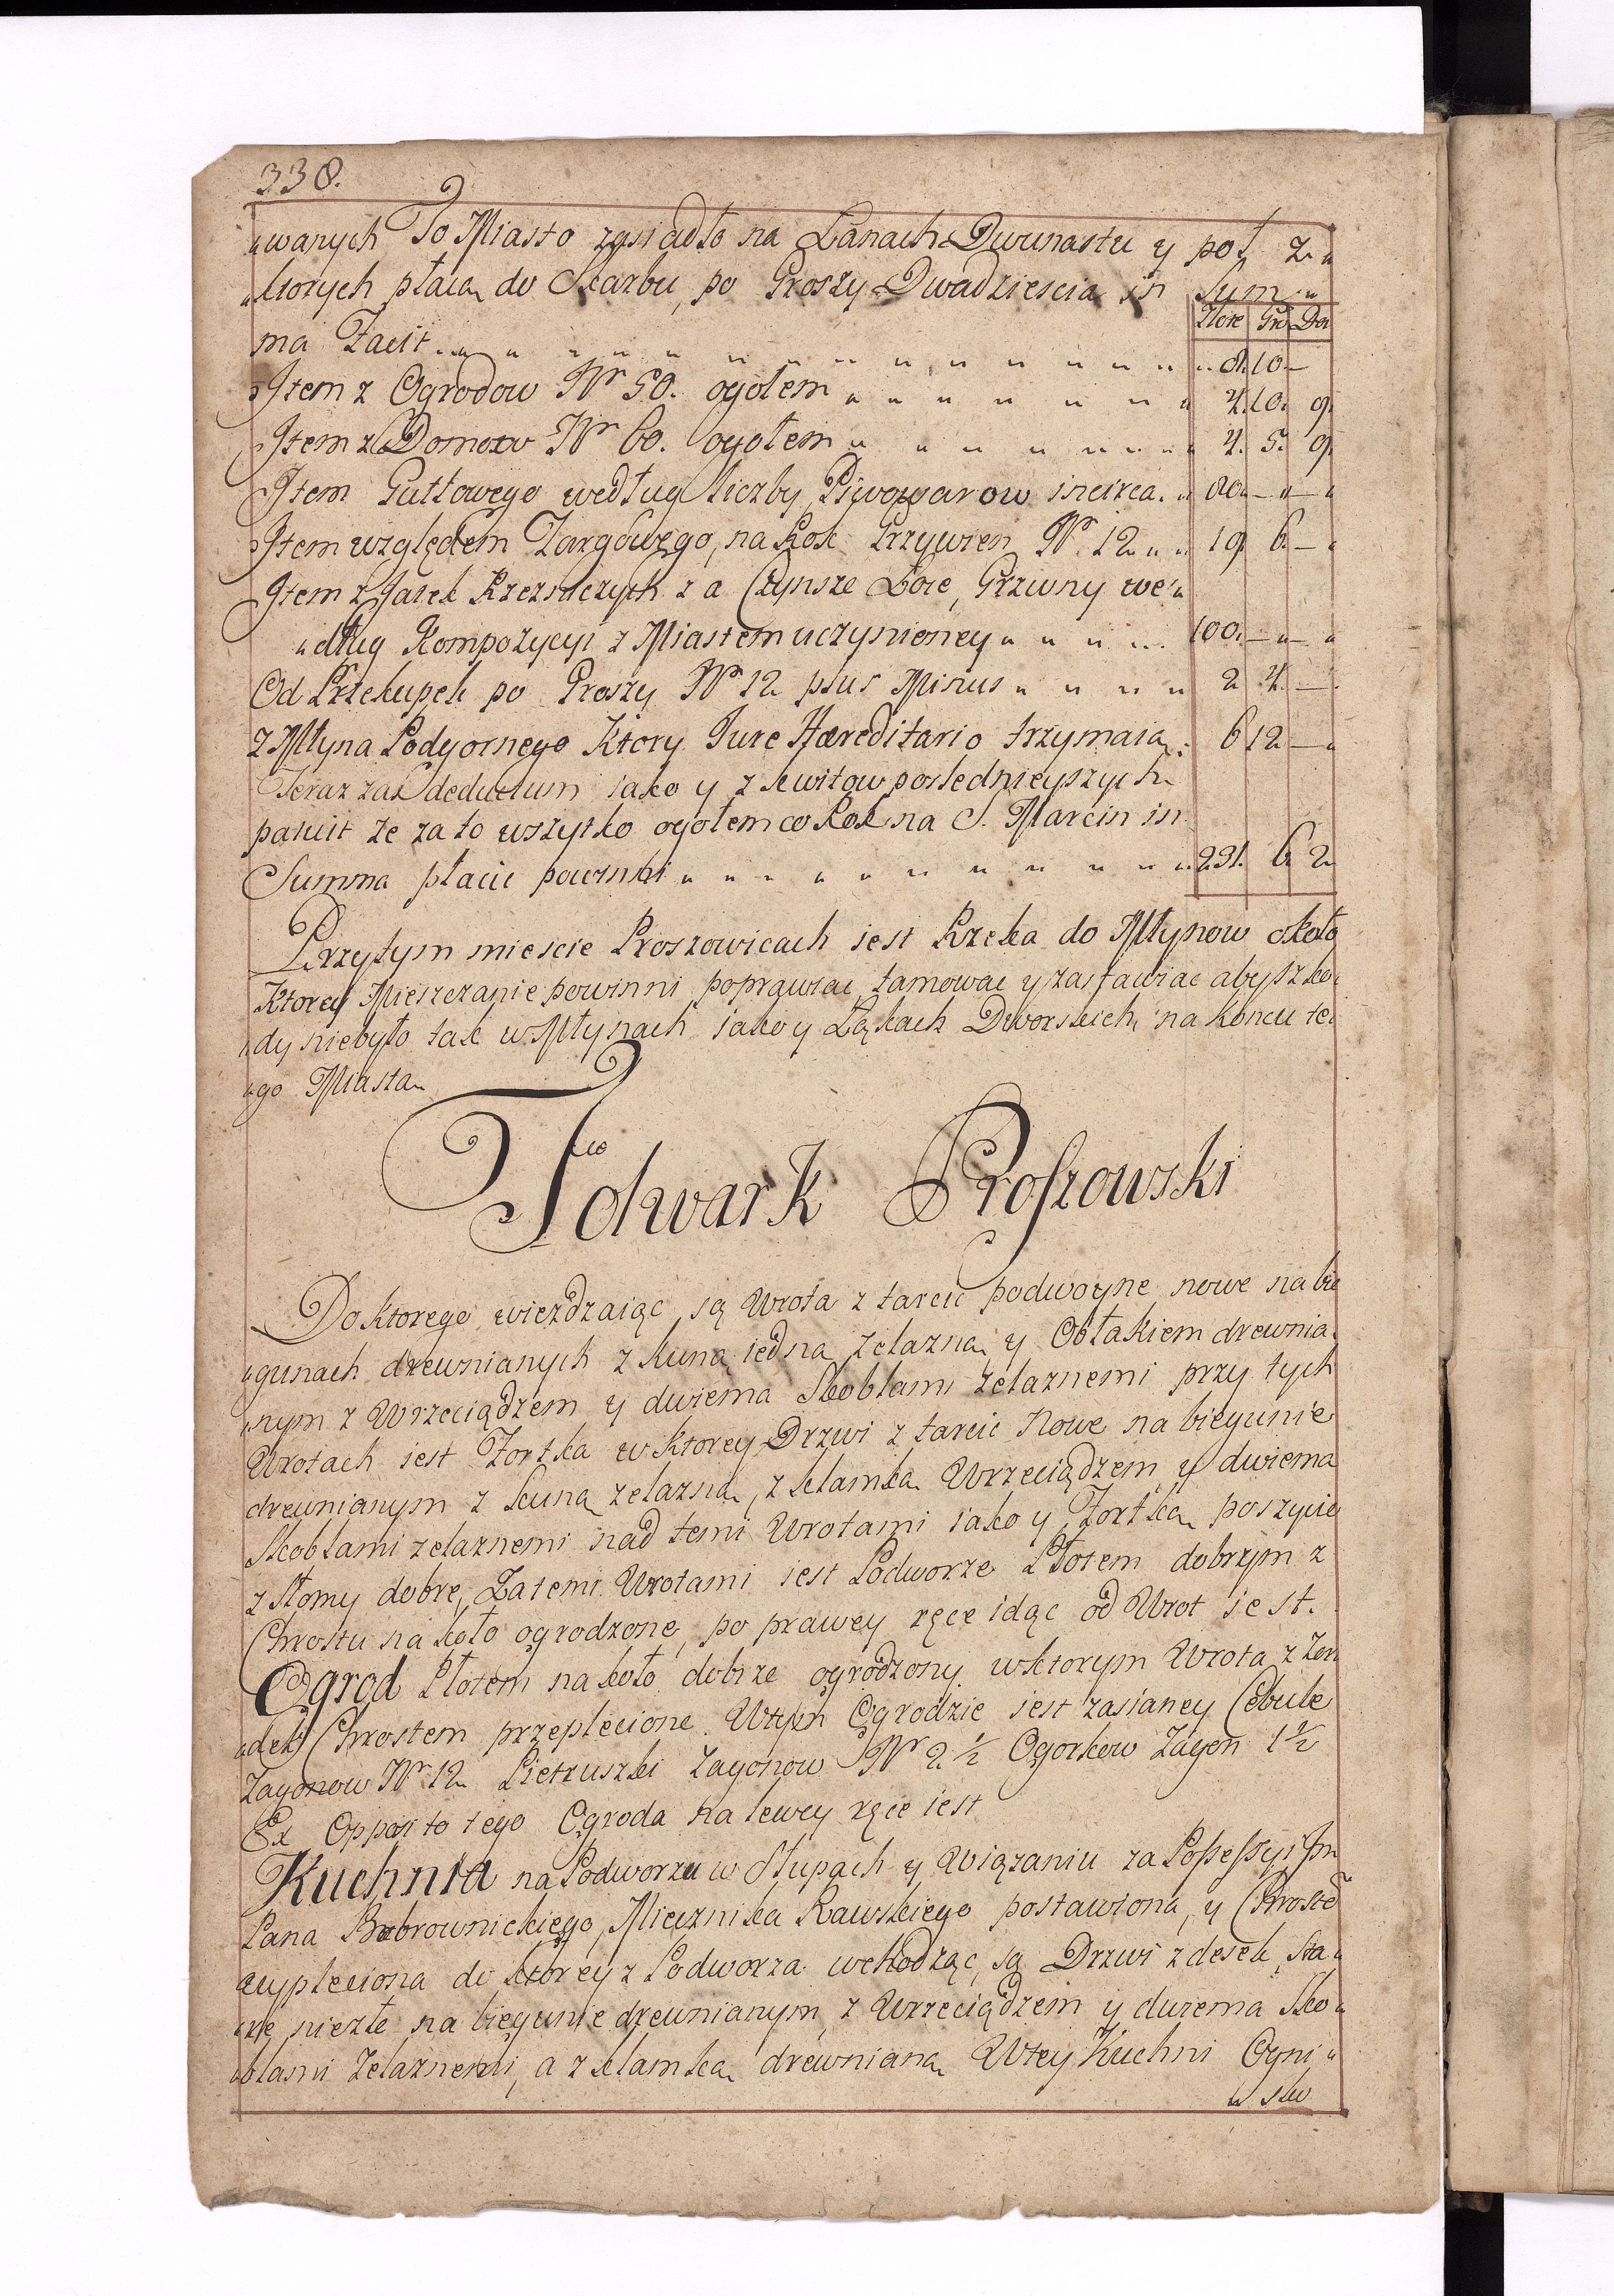 338.
„wanych To Miasto zasiadło na Łanach Dwunastu y poł z „
„ktorych płacą do Skarbu, po Groszy Dwadziescia in Sum „
Złote Gro Den
ma Facit 8. 10 –
Item z Ogrodow Nr 50. ogołem 4. 10. 9.
Item z Domow Nr 60. ogołem 4. 5. 9.
Item Guttowego według liczby Piwowarow incirca. 80 – „ – „
Item względem Targowego, na Rok Grzywien Nr 12 19 6. – „
Item z Jatek Rzezniczych z a Czynsze Łoie, Grzwny we „
„dług Kompozycyi z Miastem uczynioney 100. – „ – „
Od Przekupek po Groszy Nr 12 plus Minus 2 4. –
z Młyna Podgornego Ktory Jure Hæreditario trzymaią 6 12 – „
Teraz zas deductum iako y z kwitow poslednieyszych
patuit ze za to wszytko ogołem co Rok na S. Marcin in
Summa płacic powinni 231. 6. 2
Przytym miescie Proszowicach iest Rzeka do Młynow około
Ktorey Mieszczanie powinni poprawiac tamowac y zastawiac aby szko„
„dy niebyło tak w Młynach iako y Łąkach Dworskich na koncu te„
„go Miasta
Folwark Proszowski
Do ktorego wieżdzaiąc są Wrota z tarcic podwoyne nowe na bie
„gunach drewnianych z kuną iedną żelazną y Obłakiem drewnia„
„nym z Wrzeciądzem y dwiema Skoblami żelaznemi przy tych
Wrotach iest Fortka w ktorey Drzwi z tarcic Nowe na biegunie
drewnianym z kuną zelazną, z klamką Wrzeciądzem y dwiema
Skoblami zelaznemi nad temi Wrotami iako y Fortką poszycie
z słomy dobre, Zatemi Wrotami iest Podworze Płotem dobrym z
Chrostu na koło ogrodzone, po prawey ręce idąc od Wrot iest.
Ogrod Płotem na koło dobrze ogrodzony w ktorym Wrota z Zer
„dek Chrostem przeplecione. Wtym Ogrodzie iest zasianey Cebule
Zagonow Nr 12 Pietruszki Zagonow Nr 2 ½ Ogorkow Zagon 1 ½
Ex Opposito tego Ogroda na lewey ręce iest
Kuchnia na Podworzu w Słupach y Wiązaniu za Possessyi Jm
Pana Bobrownickiego, Miecznika Rawskiego postawiona, y Chrostē
wypleciona do ktorey z Podworza wchodząc, są Drzwi z desek, sta„
„re niezłe na biegunie drewnianym, z Wrzeciądzem y dwiema Sko„
„blami żelaznemi, a z klamką drewnianą Wtey Kuchni Ogni „
„sko